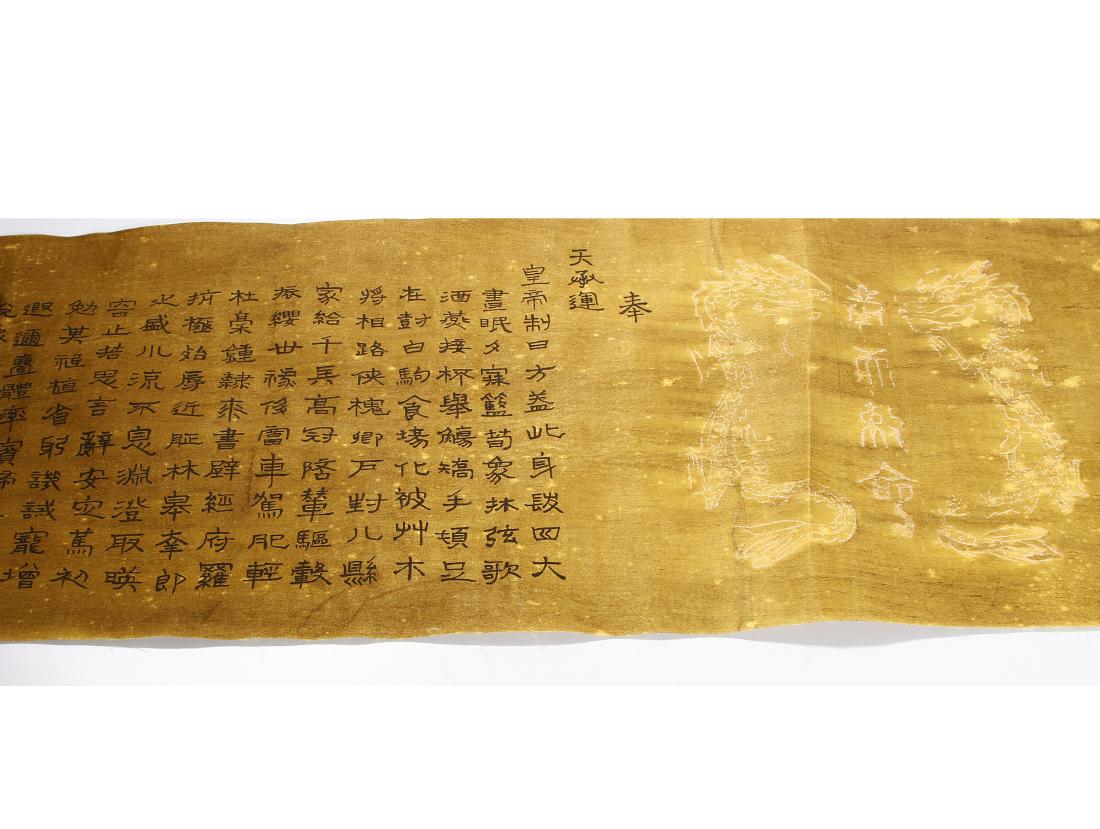 命
奉
天承運
皇帝制曰方蓋此身髮四大
晝眠夕寐籃筍象牀弦歌
酒讌接杯舉觴矯手頓足
在樹白駒食場化被草木
將相路俠槐卿戶封八縣
家給千兵高冠陪輦驅轂
振纓世祿侈富車駕肥輕
杜稾鍾隸漆書壁經府羅
抗極殆辱近恥林皋幸即
之盛川流不息淵澄取暎
容止若思言辭安定篤初
勉其祗植省躬譏誡寵增
遐邇壹體率賓